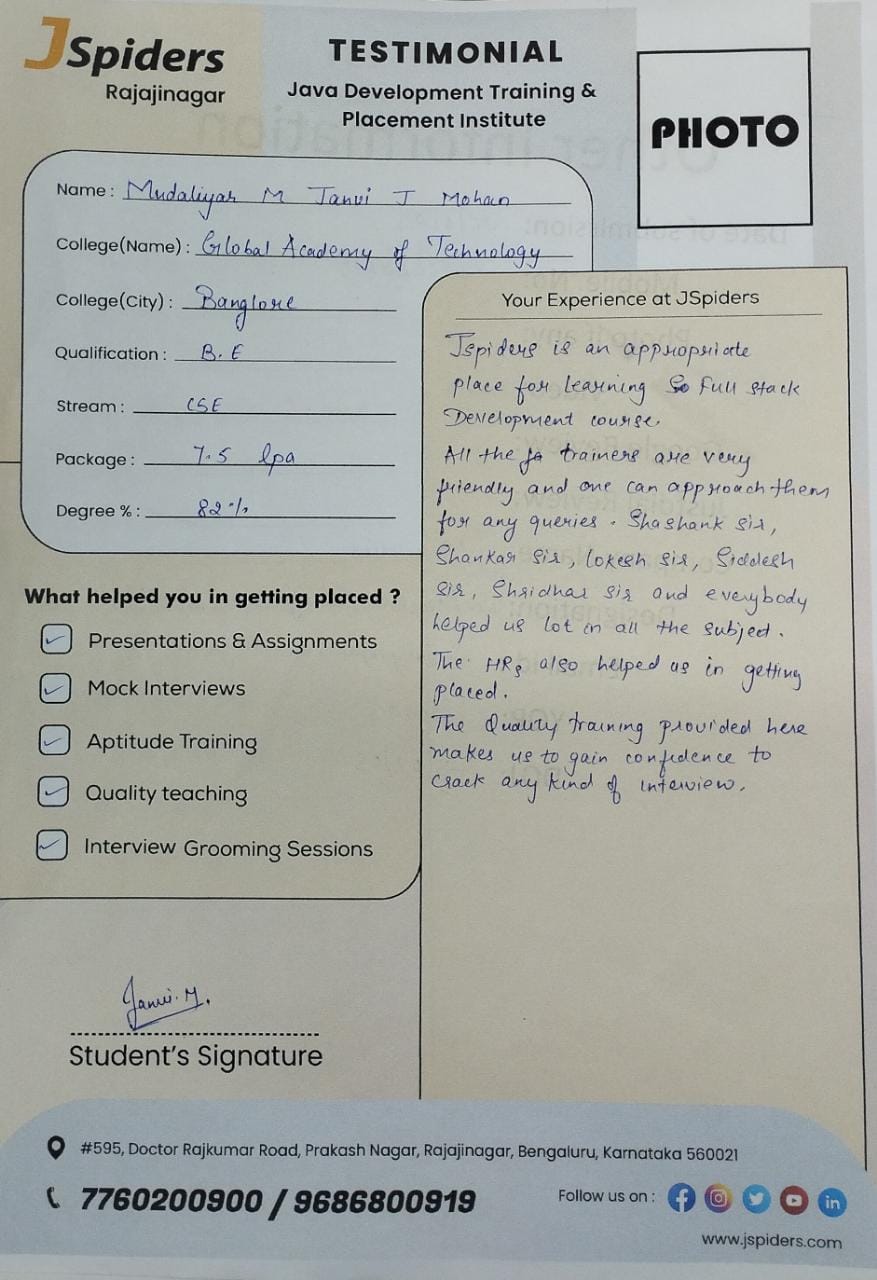 JSpiders
Rajajinagar
TESTIMONIAL
Java Development Training &
Placement Institute
PHOTO
Name : Mudaliyar M Janvi J Mohan
College(Name) : Global Academy of Technology
College(City) : Banglore
Qualification : B.E
Stream : CSE
Package : 7.5 lpa
Degree % : 82%
What helped you in getting placed ?
Presentations & Assignments
Mock Interviews
Aptitude Training
Quality teaching
Interview Grooming Sessions
Your Experience at JSpiders
Jspiders is an appropriate
place for learning Full stack
Development course.
All the trainers are very
friendly and one can approach them
for any queries. Shashank sir,
Shankar sir, lokesh sir, Siddesh
sir, Shridhar sir and everybody
helped us lot in all the subject.
The HRs also helped us in getting
placed.
The Quality training provided here
makes us to gain confidence to
crack any kind of interview.
Janvi.M.
Student's Signature
#595, Doctor Rajkumar Road, Prakash Nagar, Rajajinagar, Bengaluru, Karnataka 560021
7760200900 / 9686800919
Follow us on :
www.jspiders.com